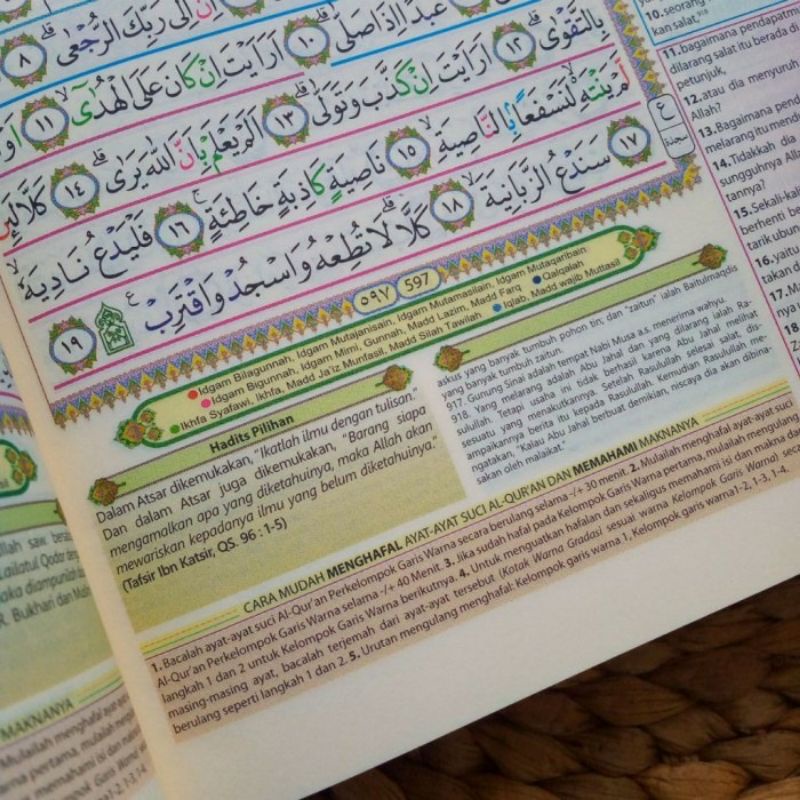 اِنَّ اِلٰى رَبِّكَ الرُّجْعٰىۗ ٨
عَبْدًا اِذَا صَلّٰىۗ ١٠ اَرَاَيْتَ اِنْ كَانَ عَلَى الْهُدٰىٓۙ ١١
بِالتَّقْوٰىۗ ١٢ اَرَاَيْتَ اِنْ كَذَّبَ وَتَوَلّٰىۗ ١٣ اَلَمْ يَعْلَمْ بِاَنَّ اللّٰهَ يَرٰىۗ ١٤ كَلَّا لَىِٕنْ
لَّمْ يَنْتَهِ ەۙ لَنَسْفَعًاۢ بِالنَّاصِيَةِۙ ١٥ نَاصِيَةٍ كَاذِبَةٍ خَاطِئَةٍۚ ١٦ فَلْيَدْعُ نَادِيَهٗۙ
١٧ سَنَدْعُ الزَّبَانِيَةَۙ ١٨ كَلَّاۗ لَا تُطِعْهُ وَاسْجُدْ وَاقْتَرِبْ ۩ ١٩
ع
سجدة
٥٩٧ 597
Idgam Bilagunnah, Idgam Mutajanisain, Idgam Mutamasilain, Idgam Mutaqaribain
Idgam Bigunnah, Idgam Mimi, Gunnah, Madd Lazim, Madd Farq Qalqalah
Ikhfa Syafawi, Ikhfa, Madd Ja'iz Munfasil, Madd Silah Tawilah Iqlab, Madd wajib Muttasil
Hadits Pilihan
Dalam Atsar dikemukakan, "Ikatlah ilmu dengan tulisan."
Dan dalam Atsar juga dikemukakan, "Barang siapa
mengamalkan apa yang diketahuinya, maka Allah akan
mewariskan kepadanya ilmu yang belum diketahuinya."
(Tafsir Ibn Katsir, QS. 96 : 1-5)
askus yang banyak tumbuh pohon tin, dan "zaitun" ialah Baitulmaqdis
yang banyak tumbuh zaitun.
917. Gunung Sinai adalah tempat Nabi Musa a.s. menerima wahyu.
918. Yang melarang adalah Abu Jahal dan yang dilarang ialah Ra-
sulullah. Tetapi usaha ini tidak berhasil karena Abu Jahal melihat
sesuatu yang menakutkannya. Setelah Rasulullah selesai salat, dis-
ampaikannya berita itu kepada Rasulullah. Kemudian Rasulullah me-
ngatakan, "Kalau Abu Jahal berbuat demikian, niscaya dia akan dibina-
sakan oleh malaikat."
CARA MUDAH MENGHAFAL AYAT-AYAT SUCI AL-QUR'AN DAN MEMAHAMI MAKNANYA
1. Bacalah ayat-ayat suci Al-Qur'an Perkelompok Garis Warna secara berulang selama -/+ 30 menit. 2. Mulailah menghafal ayat-ayat suci
Al-Qur'an Perkelompok Garis Warna selama -/+ 40 Menit. 3. Jika sudah hafal pada Kelompok Garis Warna pertama, mulailah mengulang
langkah 1 dan 2 untuk Kelompok Garis Warna berikutnya. 4. Untuk menguatkan hafalan dan sekaligus memahami isi dan makna dari
masing-masing ayat, bacalah terjemah dari ayat-ayat tersebut (Kotak Warna Gradasi sesuai warna Kelompok Garis Warna) secara
berulang seperti langkah 1 dan 2. 5. Urutan mengulang menghafal: Kelompok garis warna 1, Kelompok garis warna1-2, 1-3, 1-4.
10. seorang
kan salat,
11. bagaimana pendapatmu
dilarang salat itu berada di
petunjuk,
12. atau dia menyuruh
Allah?
13. Bagaimana pend
melarang itu mendu
14. Tidakkah dia
sungguhnya Alla
tannya?
15. Sekali-kal
berhenti be
tarik ubun
16. yaitu
takan d
17. M
nya
18.
llah saw
Lailatul Qodar
aka diampunilah
R. Bukhari dan
MAKNANYA
Mulailah menghafal
pertama, mulailah
memahami isi dan
Garis
warna1-2, 1-3, 1-4